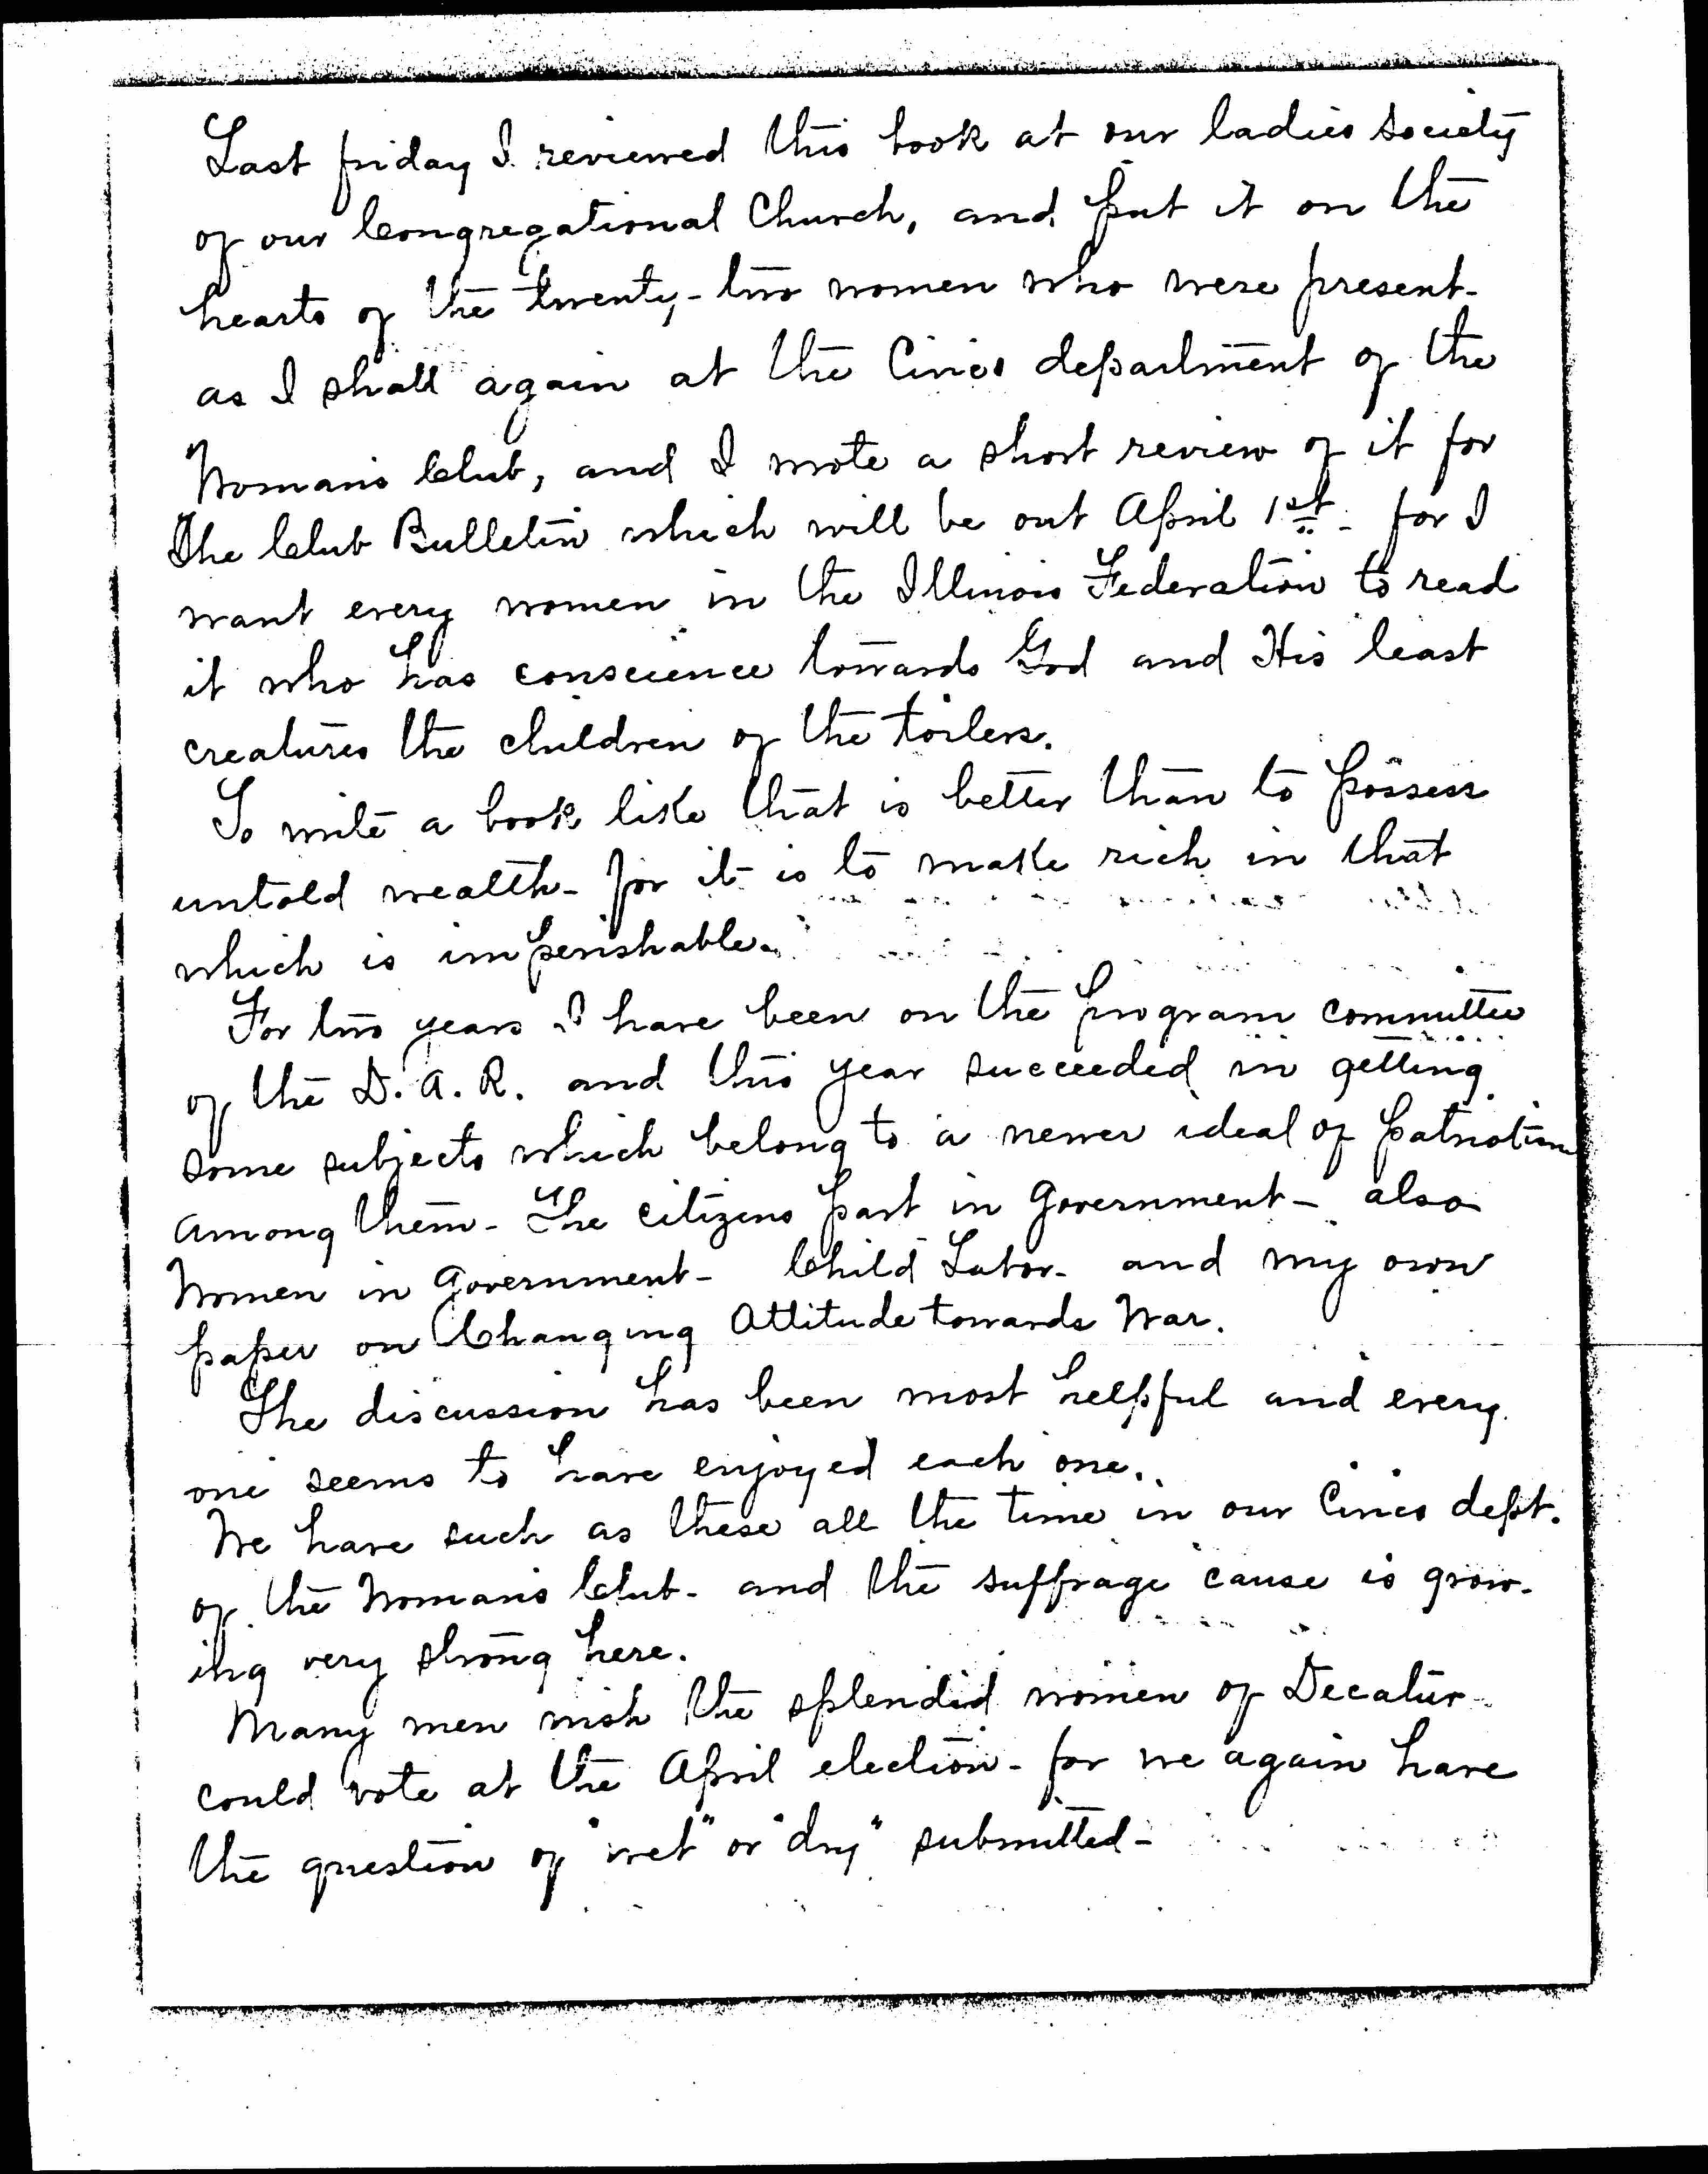 Last friday I reviewed this book at our ladies society
of our Congregational Church, and put it on the
hearts of the twenty-two women who were present-
as I shall again at the Civics department of the
Woman's Club, and I wrote a short review of it for
The Club Bulletin which will be out April 1st - for I
want every women in the Illinois Federation to read
it who has conscience towards God and His least
creatures the children of the toilers.
To write a book like that is better than to possess
untold wealth - for it is to make rich in that
which is imperishable.
For two years I have been on the program committee
of the D.A.R. and this year succeeded in getting
some subjects which belong to a newer ideal of patriotism
among them - The citizens part in Government - also
Women in Government - Child Labor - and my own
paper on Changing Attitude towards War.
The discussion has been most helpful and every
one seems to have enjoyed each one.
We have such as these all the time in our Civics dept.
of the Woman's Club - and the suffrage cause is grow-
ing very strong here.
Many men wish the splendid women of Decatur
could vote at the April election - for we again have
the question of "wet" or "dry" submitted -